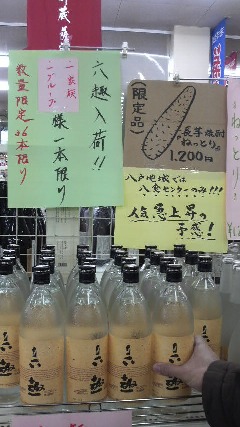 六趣入荷!!
一家族
一グループ
様一本限り
数量限定36本限り
(限定品)
長芋焼酎
ねっとり
1,200円
八戸地域では
八食センターのみ!!!
人気急上昇の
予感!
六趣
六趣
六趣
六趣